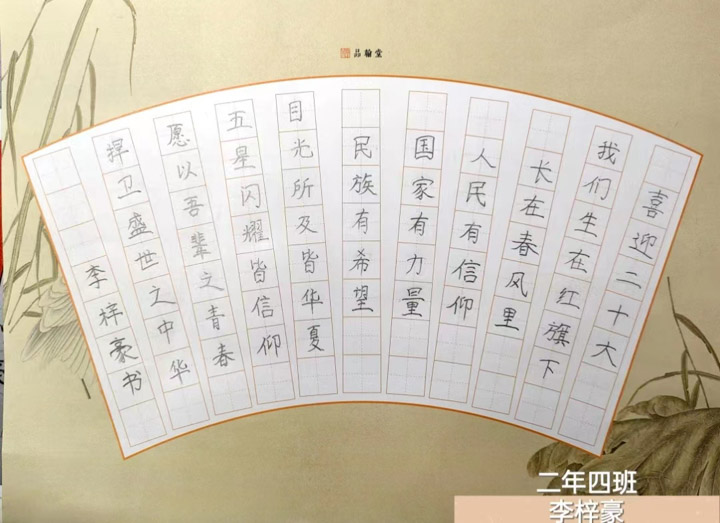 品翰堂
喜迎二十大
我们生在红旗下
长在春风里
人民有信仰
国家有力量
民族有希望
目光所及皆华夏
五星闪耀皆信仰
愿以吾辈之青春
捍卫盛世之中华
李梓豪书
二年四班
李梓豪